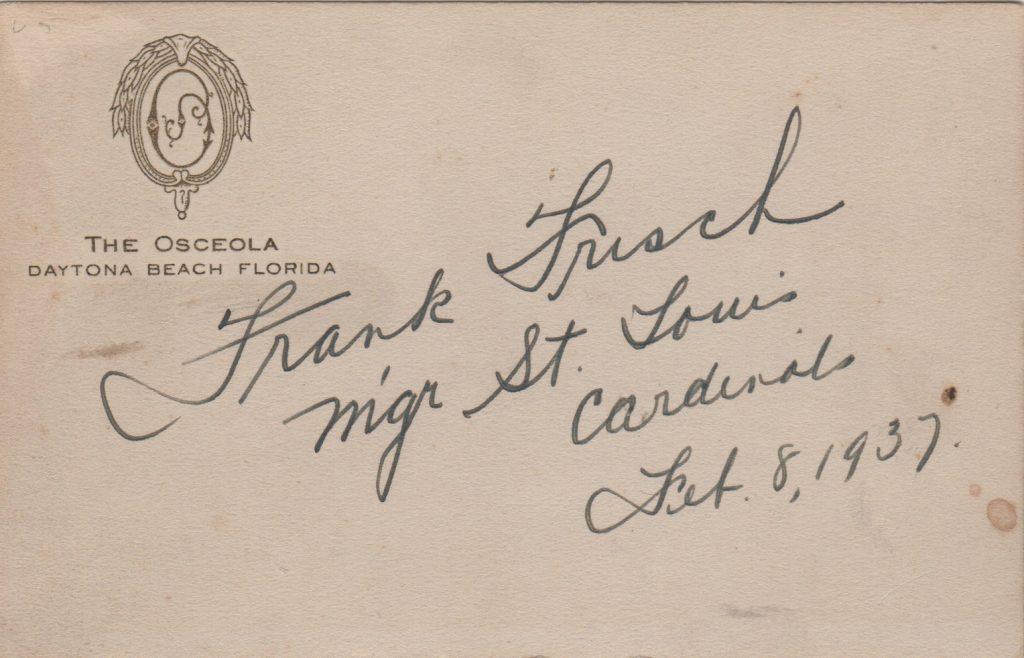 THE OSCEOLA
DAYTONA BEACH FLORIDA
Frank Frisch
Mgr St. Louis
Cardinals
Feb. 8, 1937.